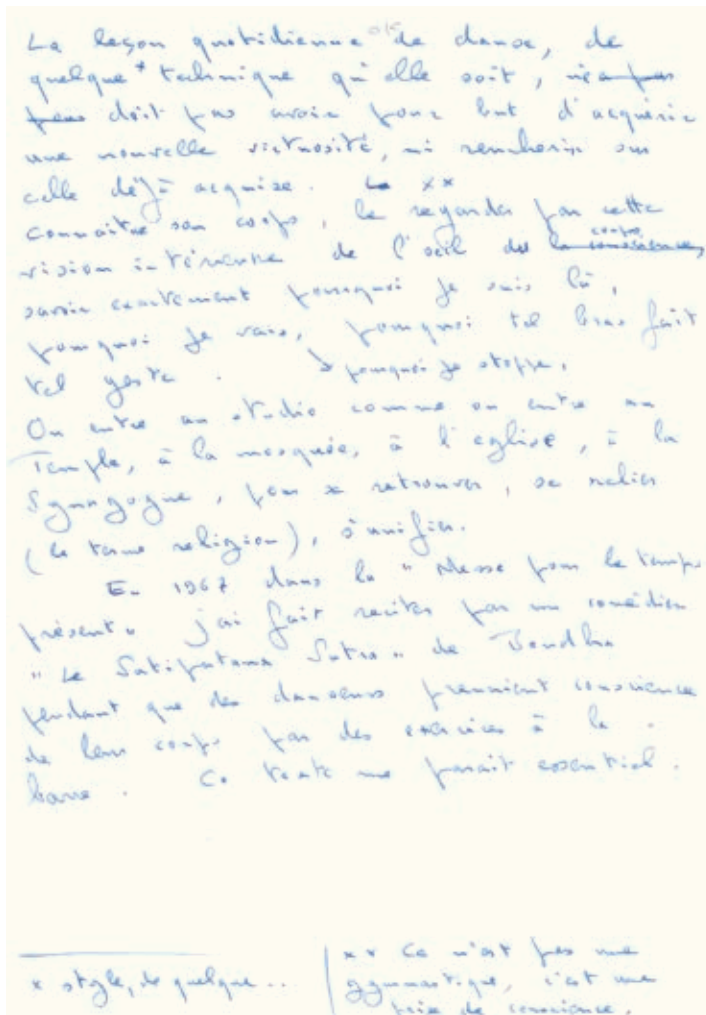 La leçon quotidienne de danse, de
quelque * technique qu'elle soit, n'a pas
pas doit pas avoir pour but d'acquérir
une nouvelle virtuosité, ni renchérir sur
celle déjà acquise. Le xx
connaître son corps, le regarder par cette
vision intérieure de l'oeil du la conscience, corps
savoir exactement pourquoi je suis là,
pourquoi je vais, pourquoi tel bras fait
tel geste. ↘ pourquoi je stoppe,
On entre au studio comme on entre au
Temple, à la mosquée, à l'église, à la
Synagogue, pour se retrouver, se relier
(le terme religion), s'unifier.
En 1967 dans la "Messe pour le temps
présent" j'ai fait reciter par un comédien
"Le Satipatana Sutra" de Bouddha
pendant que des danseurs prenaient conscience
de leur corps par des exercices à la
barre. Ce texte me parait essentiel.
x style, de quelque...
xx Ce n'est pas une
gymnastique, c'est une
prise de conscience.